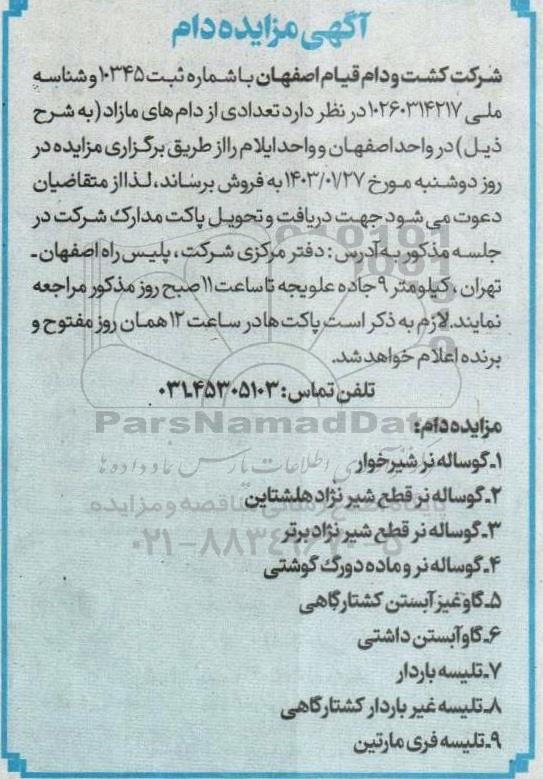 آگهی مزایده دام
شرکت کشت و دام قیام اصفهان با شماره ثبت ۱۰۳۴۵ و شناسه
ملی ۱۰۲۶۰۳۱۴۲۱۷ در نظر دارد تعدادی از دام های مازاد (به شرح
ذیل) در واحد اصفهان و واحد ایلام را از طریق برگزاری مزایده در
روز دوشنبه مورخ ۱۴۰۳/۰۱/۲۷ به فروش برساند، لذا از متقاضیان
دعوت می شود جهت دریافت و تحویل پاکت مدارک شرکت در
جلسه مذکور به آدرس: دفتر مرکزی شرکت، پلیس راه اصفهان ـ
تهران، کیلومتر ۹ جاده علویجه تا ساعت ۱۱ صبح روز مذکور مراجعه
نمایند. لازم به ذکر است پاکت ها در ساعت ۱۲ همان روز مفتوح و
برنده اعلام خواهد شد.
تلفن تماس: ۰۳۱ـ۴۵۳۰۵۱۰۳
ParsNamadData
مزایده دام:
۱ـ گوساله نر شیرخوار
۲ـ گوساله نر قطع شیر نژاد هلشتاین
۳ـ گوساله نر قطع شیر نژاد برتر
۴ـ گوساله نر و ماده دورگ گوشتی
۵ـ گاو غیز آبستن کشتارگاهی
۶ـ گاو آبستن داشتی
۷ـ تلیسه باردار
۸ـ تلیسه غیر باردار کشتارگاهی
۹ـ تلیسه فری مارتین